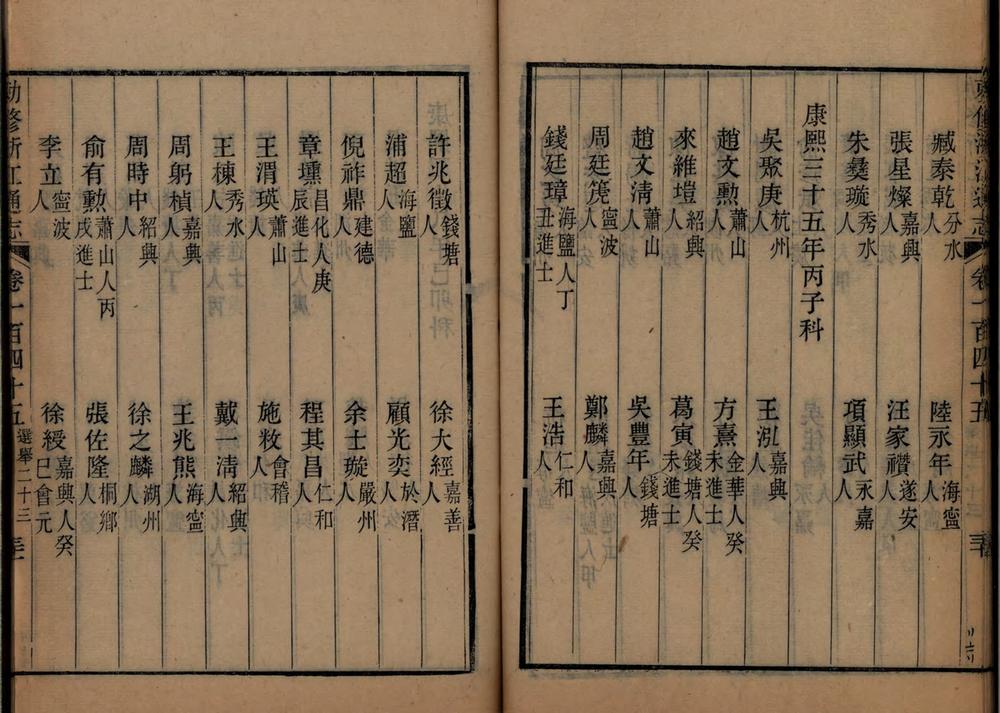 臧泰乾分水人 陸永年海寧人
張星燦嘉興人 汪家禶遂安人
朱彝璇秀水人 項顯武永嘉人
康熙三十五年丙子科
吳聚庚杭州人 王泓嘉興人
趙文勲蕭山人 方熹金華人癸未進士
來維塏紹興人 葛寅錢塘人癸未進士
趙文淸蕭山人 吳豐年錢塘人
周廷箎寧波人 鄭麟嘉興人
錢廷璋海鹽人丁丑進士 王浩仁和人
許兆徵錢塘人 徐大經嘉善人
浦超海鹽人 顧光奕於潛人
倪祚鼎建德人 余士璇嚴州人
章壎昌化人庚辰進士 程其昌仁和人
王渭瑛蕭山人 施敉會稽人
王棟秀水人 戴一淸紹興人
周躬楨嘉興人 王兆熊海寧人
周時中紹興人 徐之麟湖州人
俞有勲蕭山人丙戌進士 張佐隆桐鄕人
李立寧波人 徐綬嘉興人癸巳會元
勅修浙江通志 卷一百四十五 選舉二十三